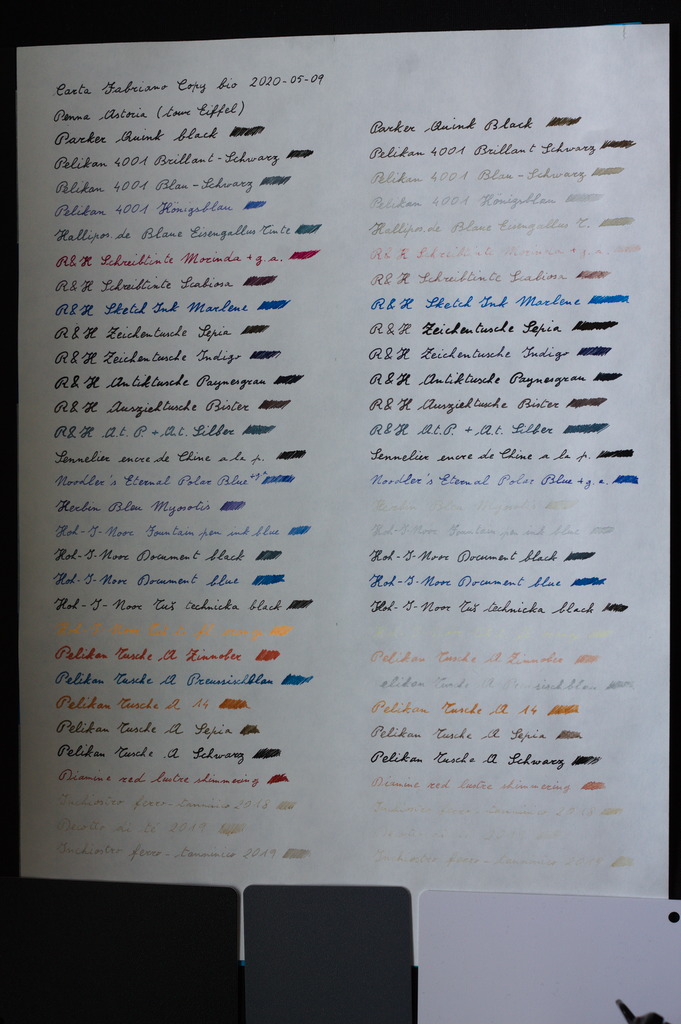 Carta Fabriano Copy bio 2020-05-09
Penna Astoria (tour Eiffel)
Parker Quink black
Pelikan 4001 Brillant-Schwarz
Pelikan 4001 Blau-Schwarz
Pelikan 4001 Königsblau
Hallipos.de Blaue Eisengallus Tinte
R&H Schreibtinte Morinda + g.a.
R&H Schreibtinte Scabiosa
R&H Sketch Ink Marlene
R&H Zeichentusche Sepia
R&H Zeichentusche Indigo
R&H Antiktusche Paynesgrau
R&H Ausziehtusche Bister
R&H A.t. P. + A.t. Silber
Sennelier encre de Chine a la p.
Noodler's Eternal Polar Blue + g.a.
Herbin Bleu Myosotis
Koh-I-Noor Fountain pen ink blue
Koh-I-Noor Document black
Koh-I-Noor Document blue
Koh-I-Noor Tuš technicka black
Pelikan Tusche A Zinnober
Pelikan Tusche A Preussischblau
Pelikan Tusche A 14
Pelikan Tusche A Sepia
Pelikan Tusche A Schwarz
Diamine red lustre shimmering
Inchiostro ferro-tannnico 2018
2019
Inchiostro ferro-tannnico 2019
Parker Quink Black
Pelikan 4001 Brillant Schwarz
Pelikan 4001 Blau-Schwarz
Pelikan 4001 Königsblau
Hallipos.de Blaue Eisengallus T.
R&H Schreibtinte Morinda + g.a.
R&H Schreibtinte Scabiosa
R&H Sketch Ink Marlene
R&H Zeichentusche Sepia
R&H Zeichentusche Indigo
R&H Antiktusche Paynesgrau
R&H Ausziehtusche Bister
R&H A.t.P. + A.t. Silber
Sennelier encre de Chine a la p.
Noodler's Eternal Polar Blue + g.a.
Herbin Bleu Myosotis
Koh-I-Noor Fountain pen ink blue
Koh-I-Noor Document black
Koh-I-Noor Document blue
Koh-I-Noor Tuš technicka black
Pelikan Tusche A Zinnober
elikan Tusche A Preussischblau
Pelikan Tusche A 14
Pelikan Tusche A Sepia
Pelikan Tusche A Schwarz
Diamine red lustre shimmering
Inchiostro ferro-tannnico 2018
Inchiostro ferro-tannnico 2019